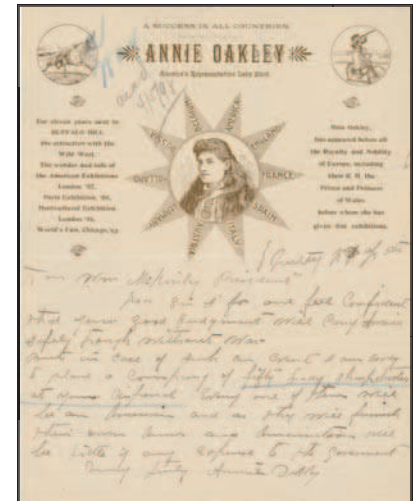 A SUCCESS IN ALL COUNTRIES
ANNIE OAKLEY
America's Representative Lady Shot
For eleven years next to
BUFFALO BILL
the attraction with the
Wild West.
The wonder and talk of
the American Exhibition
London '87,
Paris Exhibition, '89,
Horticultural Exhibition
London '92,
World's Fair, Chicago, '93
Miss Oakley,
has appeared before all
the Royalty and Nobility
of Europe, including
their R. H. the
Prince and Princess
of Wales
before whom she has
given five exhibitions.
AMERICA
ENGLAND
FRANCE
SPAIN
ITALY
Hon Wm McKinley President
Dear Sir I for one feel Confident
that your good judgment will carry America
safely through without war
But in case of such an event I am ready
to place a Company of fifty lady sharpshooters
at your disposal. Every one of them will
be an American and as they will furnish
their own Arms and Ammunition will
be little if any expense to the government
Very truly Annie Oakley